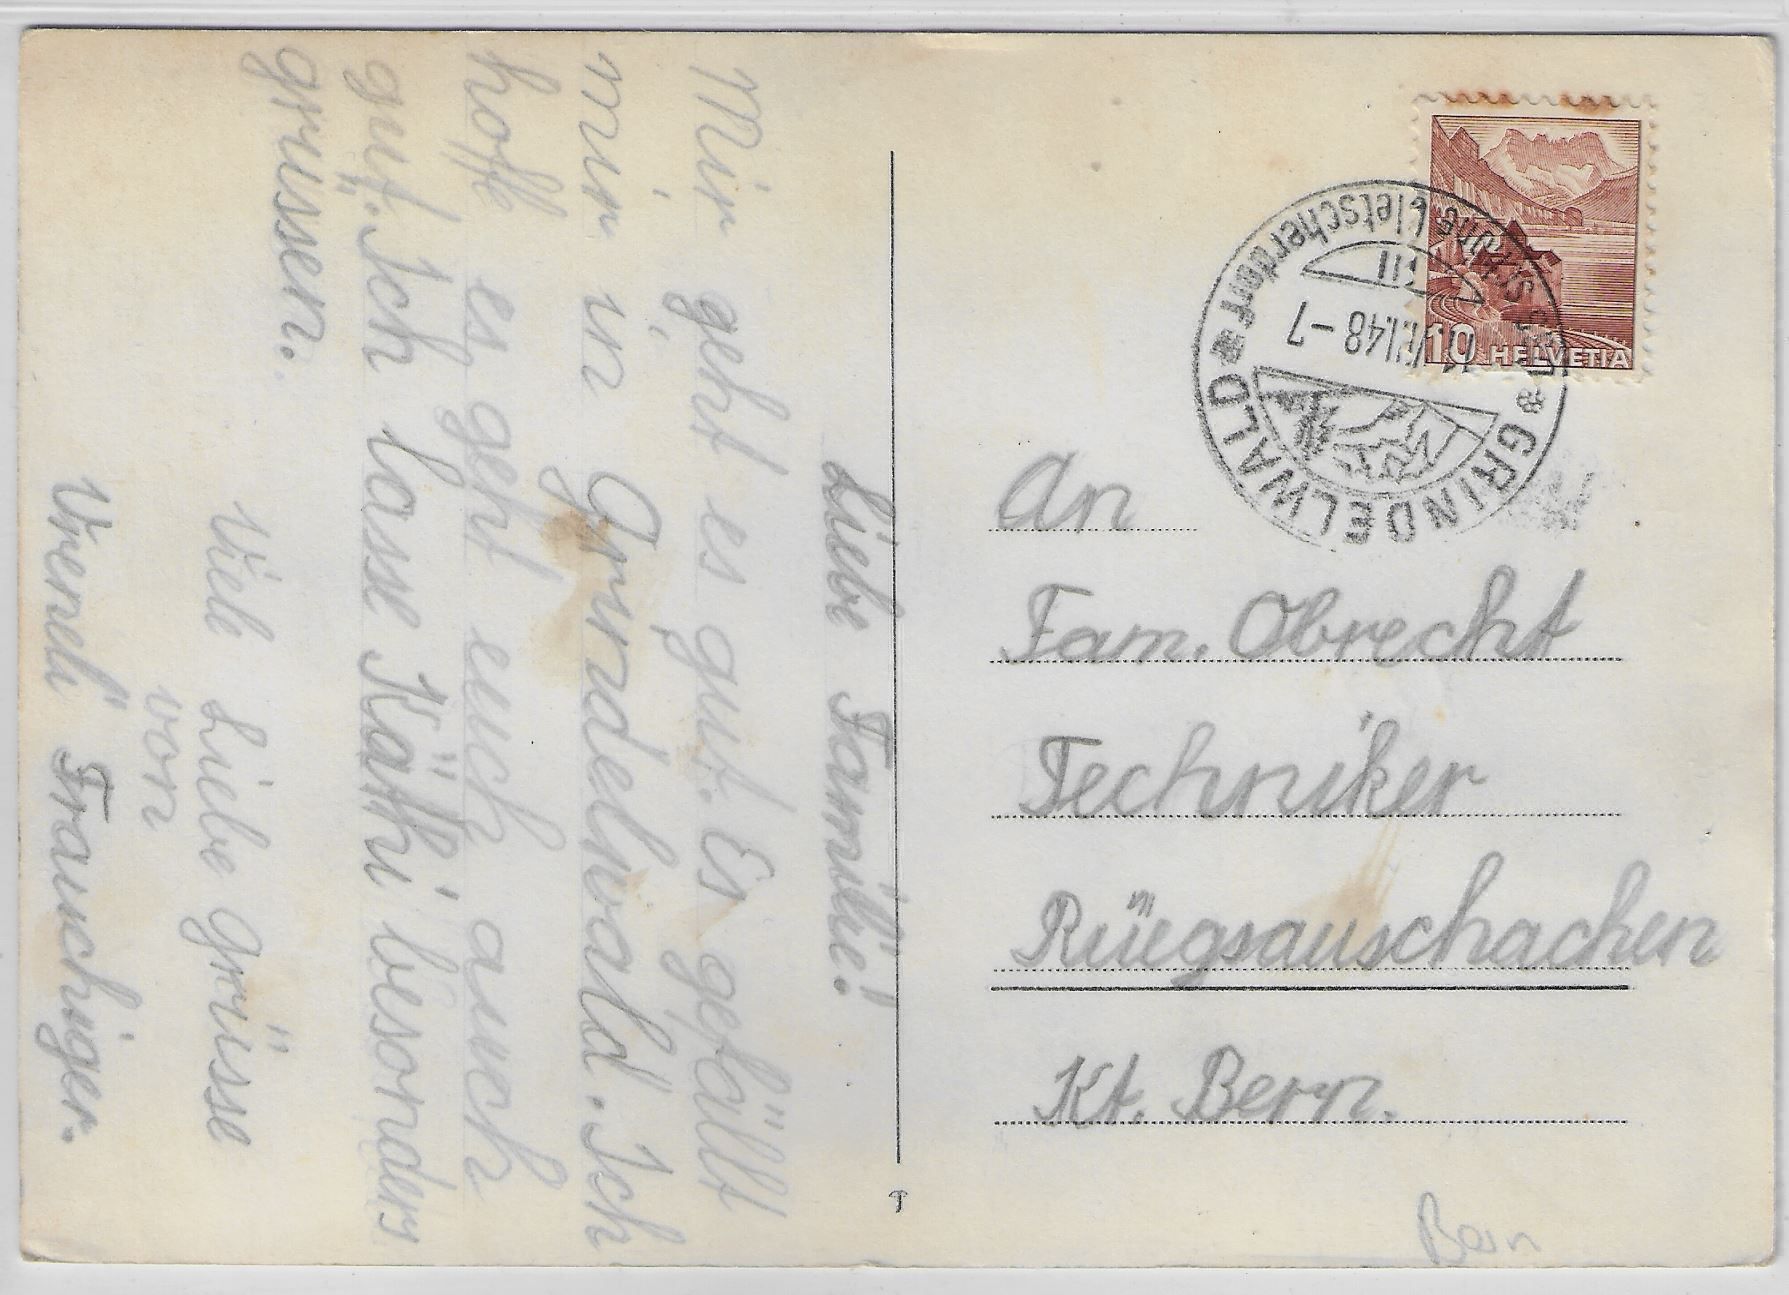 Liebe Familie!
Mir geht es gut. Es gefällt
mir in Grindelwald. Ich
hoffe es geht euch auch
gut. Ich lasse Käthi besonders
grüssen.
Viele Liebe Grüsse
von
Vreneli Frauchiger.
10 HELVETIA
GRINDELWALD
Gletscherdorf
48-7
An
Fam. Obrecht
Techniker
Rüegsauschachen
Kt. Bern.
Bern